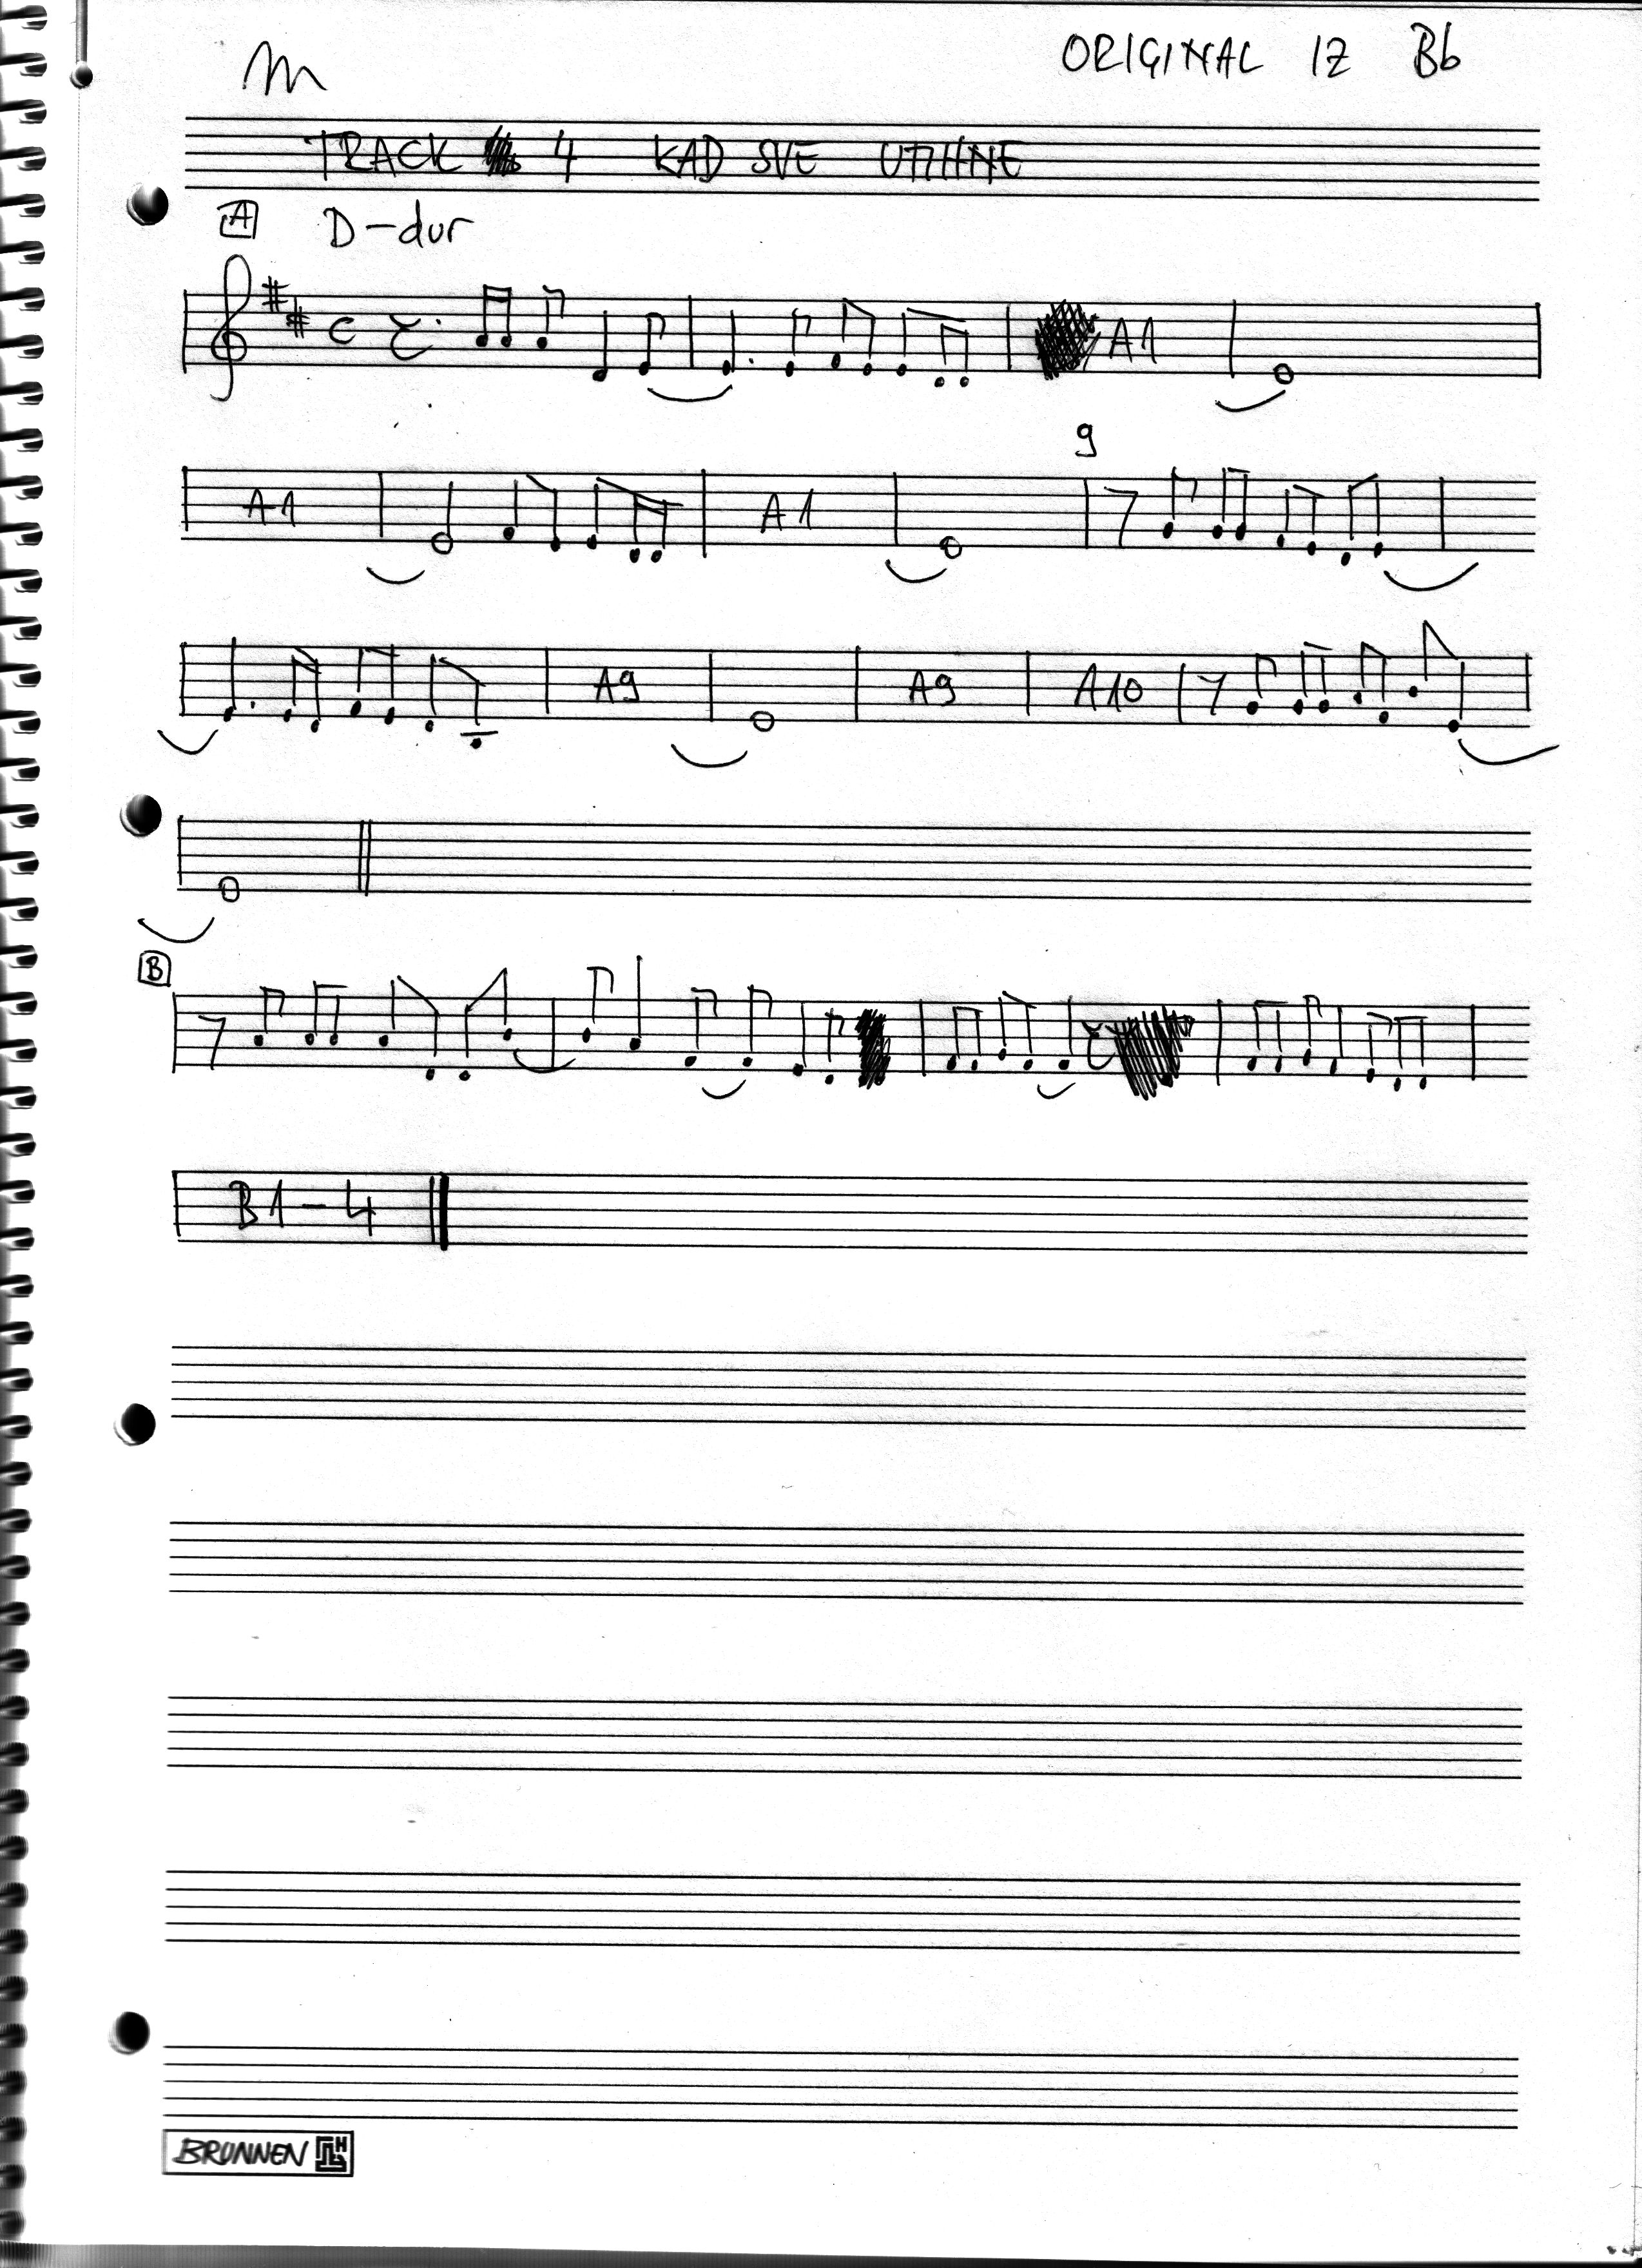 m
ORIGINAL IZ Bb
TRACK 4 KAD SVE UTIHNE
A D-dur
C A1
9
A1 A1
A9 A9 A10
B
B1-4
BRUNNEN